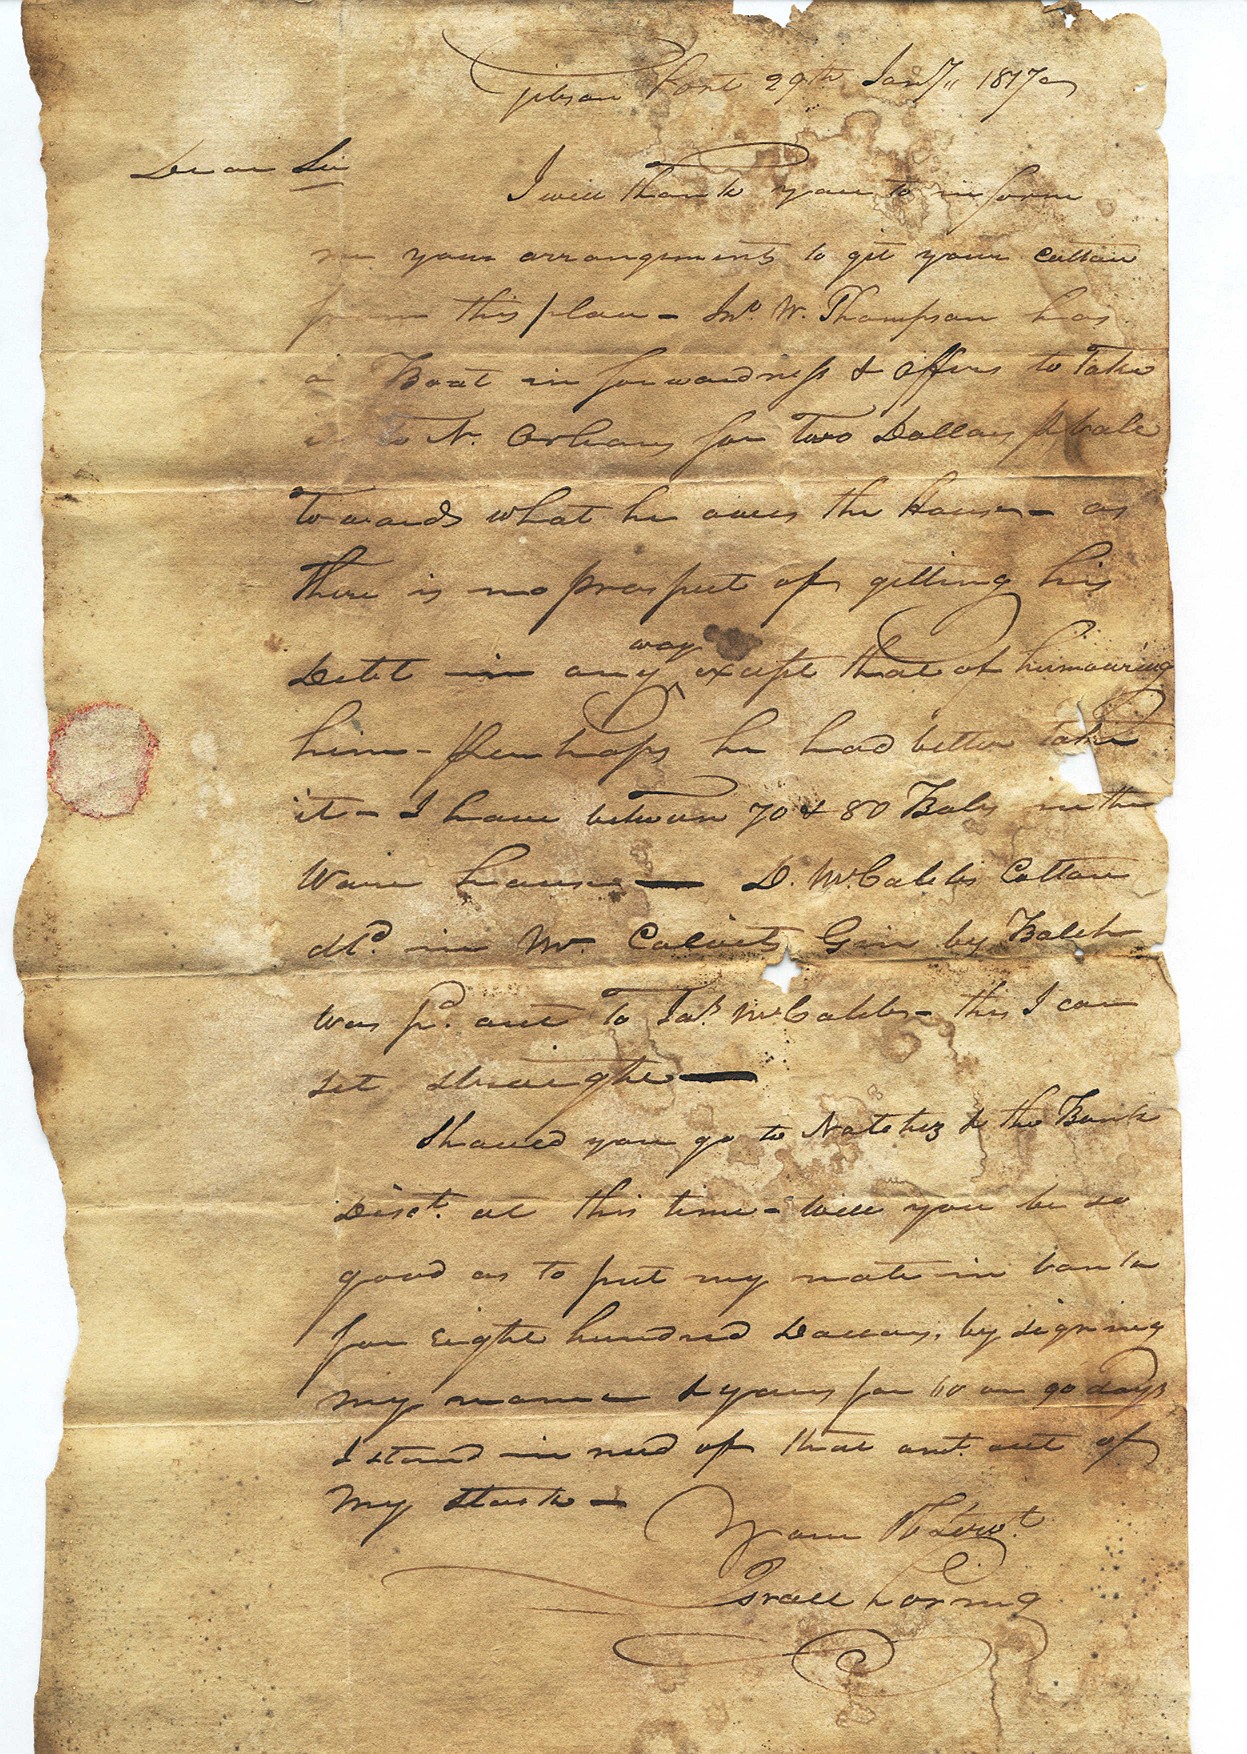 Gibson Port 29th Jany 1817
Dear Sir
I will thank you to inform
me your arrangements to git your Cotton
from this place - Jno. W. Thompson has
a Boat in forwardness & offers to Take
it to N. Orleans for Two Dollars p bale
Towards what he owes the House - as
there is no prospect of gitting his
Debt in any way except that of humouring
him - perhaps he had better take
it - I have between 70 & 80 Bales in the
Ware house — D. McCalebs Cotton
dld. in Mr Calvits Gin by Balch
was pd. out to Jas. McCalebs - this I can
set straight —
Should you go to Natchez & the Bank
Disct. at this time - will you be so
good as to put my note in bank
for Eight hundred Dollars, by signing
my name & yours for 60 or 90 days
I stand in need of that amt. out of
My Stock -
Your Ob Servt.
Israel Loring